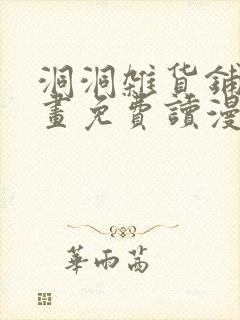 洞洞雜貨鋪
畫免費讀漫
華雨茜